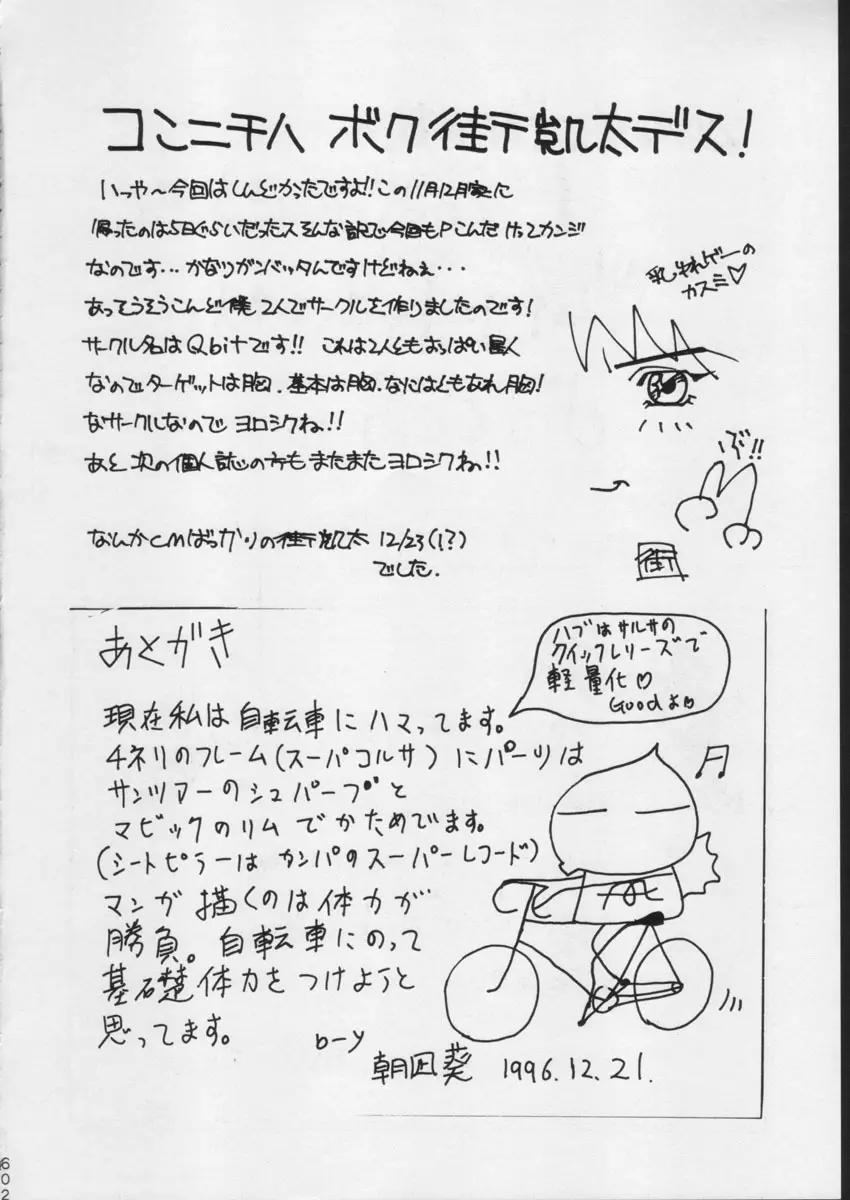 コンニチハ ボク街〒凱太デス!
いっや〜今回はしんどかったですよ!!この11月12月家に
帰ったのは5日ぐらいだったスそんな訳で今回もPこんだけってカンジ
なのです…かなりガンバッタんですけどねぇ・・・
あってうそうそこんど僕2人でサークルを作りましたのです!
サークル名はQbitです!! これは2人ともおっぱい星人
なのでターゲットは胸.基本は胸.なにはともあれ胸!
なサークルなのでヨロシクね!!
あと次の個人誌の方もまたまたヨロシクねっ!!
なんかCMばっかりの街〒凱太 12/23(!?)
でした.
乳ゆれゲーの
カスミ♡
ぷ!!
街〒
あとがき
ハブはサルサの
クイックレリーズで
軽量化♡
Goodよ♡
現在私は自転車にハマってます。
チネリのフレーム(スーパコルサ)にパーツは
サンツアーのシュパーブと
マビックのリムでかためてます。
(シートピラーはカンパのスーパーレコード)
マンガ描くのは体力が
勝負。自転車にのって
基礎体力をつけようと
思ってます。
by
朝凪葵 1996.12.21.
602